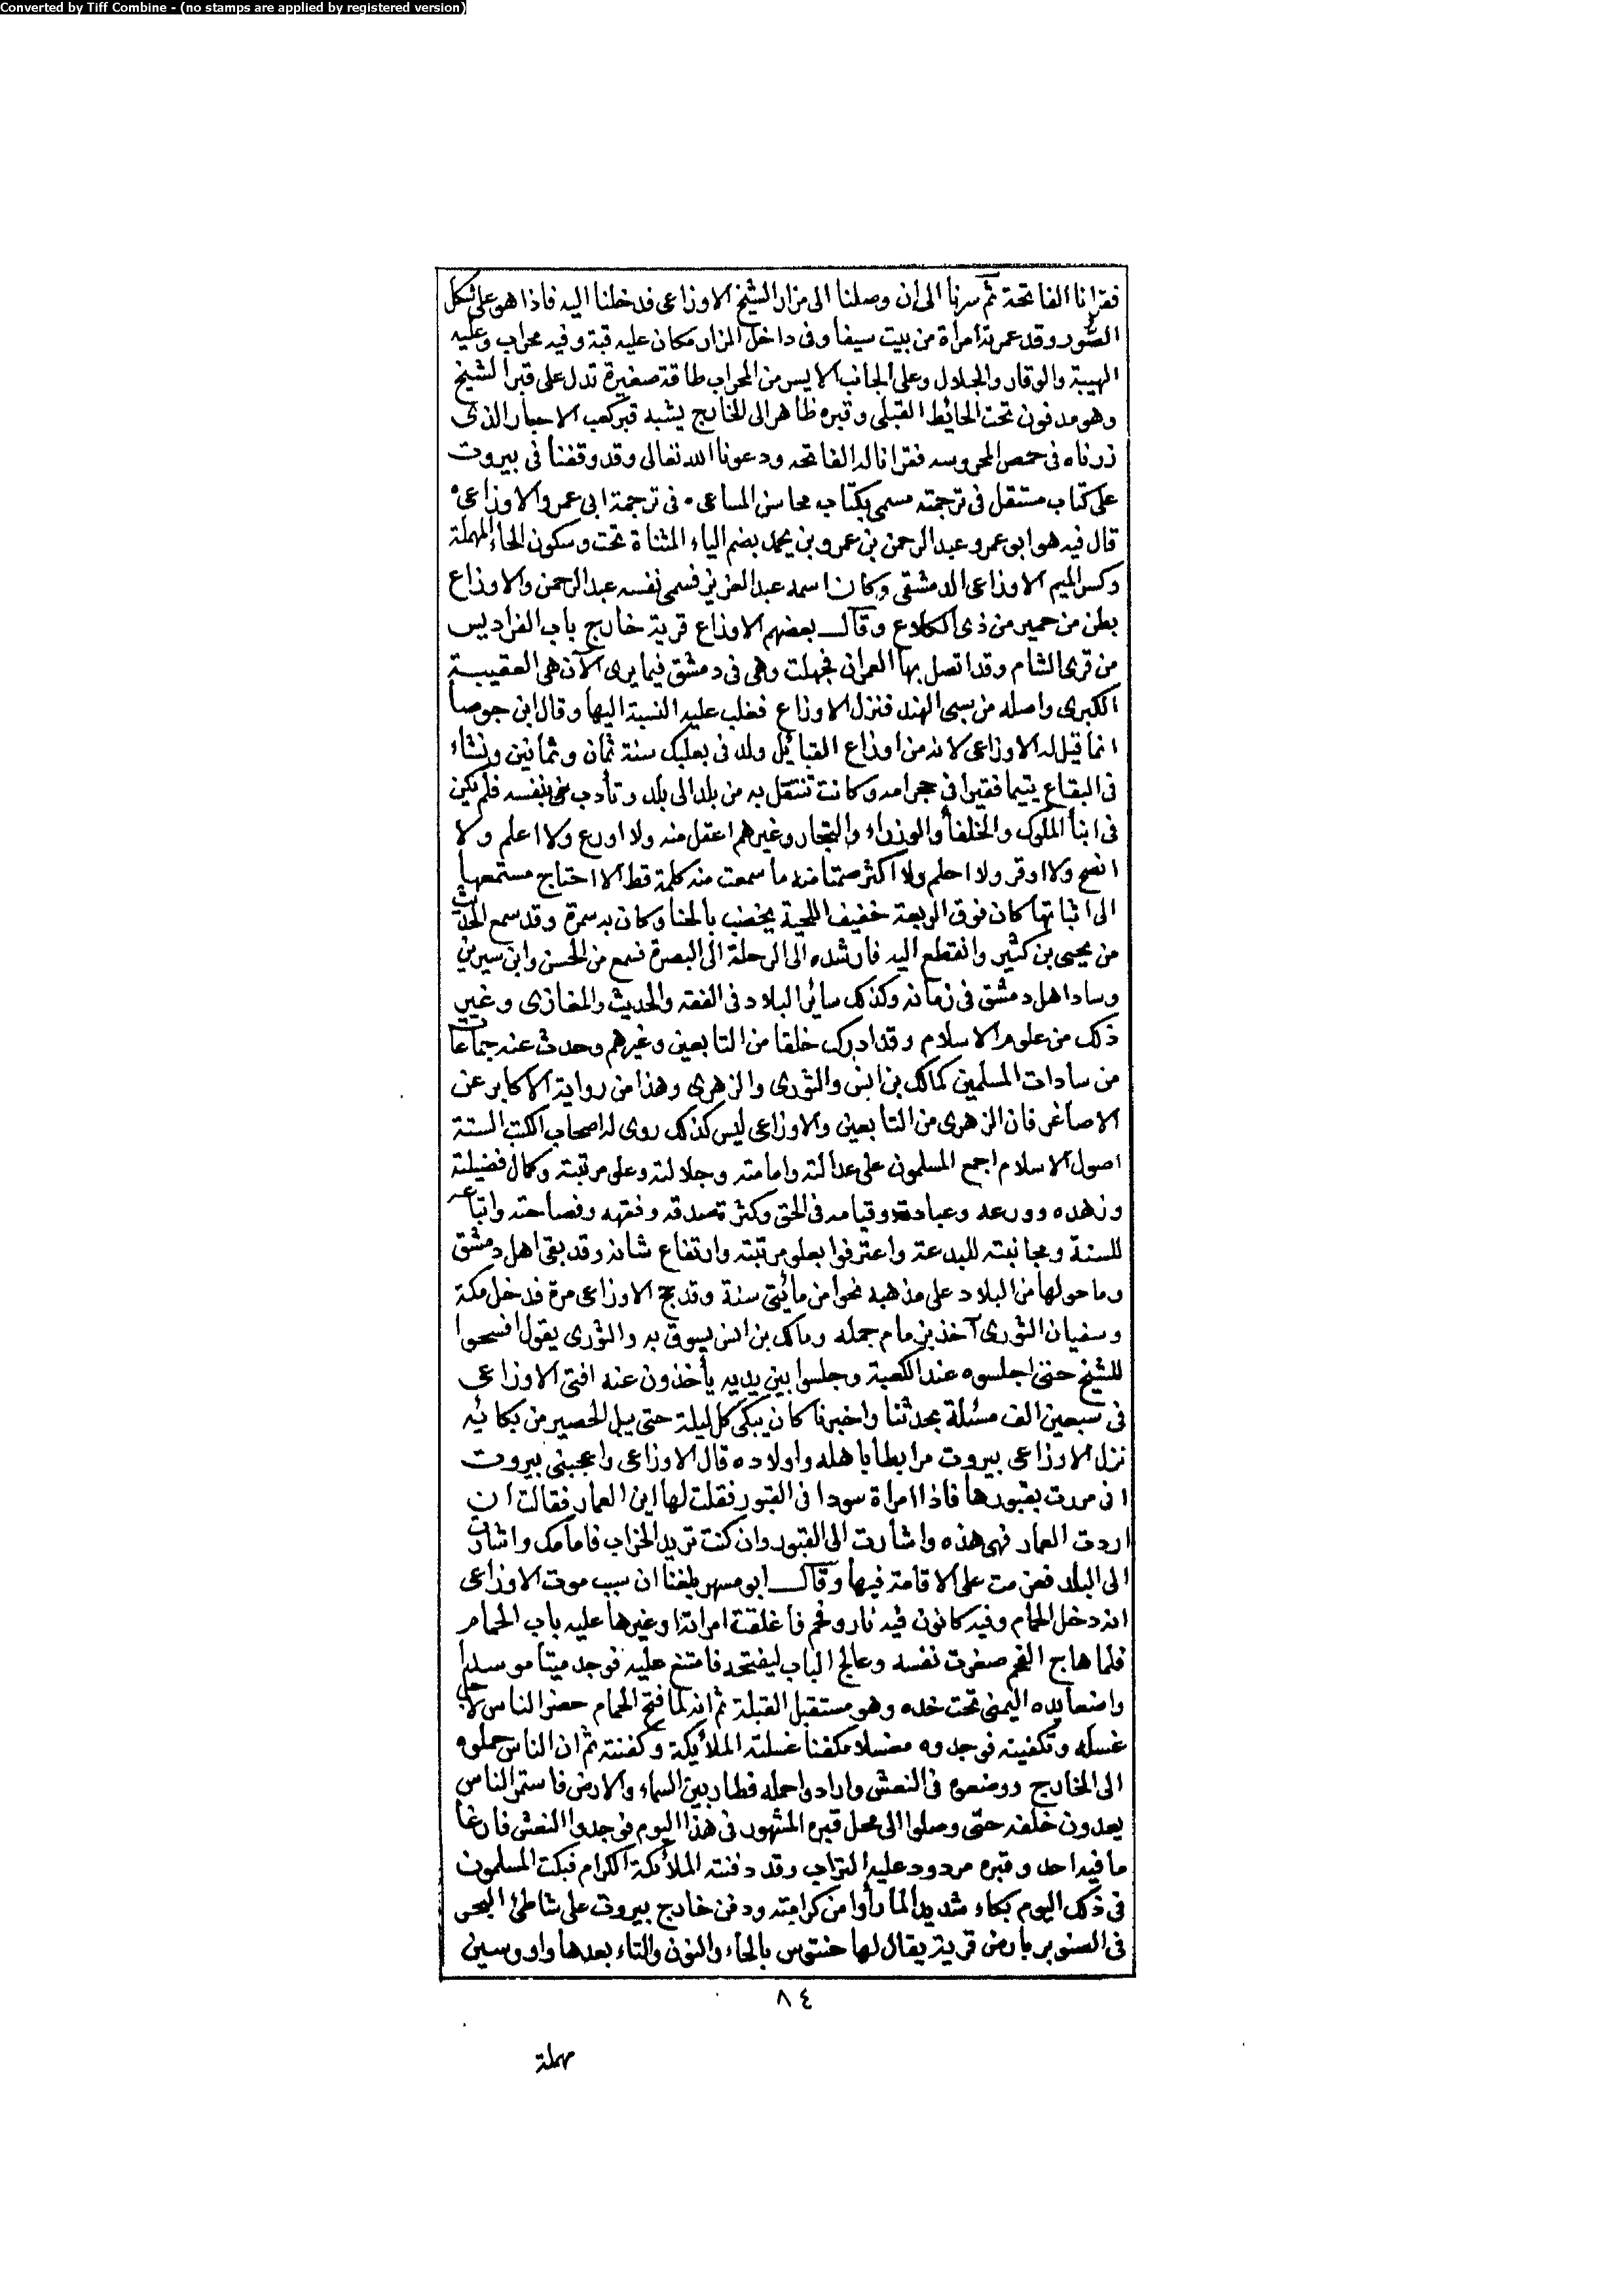 Converted by Tiff Combine - (no stamps are applied by registered version)
فقرانا الفاتحة ثم سرنا الى ان وصلنا الى مزار الشيخ الاوزاعى فدخلنا اليه فاذا هو على شكل
الصور وقد عمرته امراة من بيت سيفا وفى داخل المزار مكان عليه قبة وفيه محراب وعليه
الهيبة والوقار والجلال وعلى الجانب الايسر من المحراب طاقة صغيرة تدل على قبر الشيخ
وهو مدفون تحت الحائط القبلى وقبره ظاهر الى الخارج يشبه قبر كعب الاحبار الذى
زرناه فى حمص المحروسه فقرانا له الفاتحه ودعونا الله تعالى وقد وقفنا فى بيروت
على كتاب مستقل فى ترجمته مسمى بكتاب محاسن المساعى ٠ فى ترجمة ابى عمرو الاوزاعى ٠
قال فيه هو ابو عمرو عبد الرحمن بن عمرو بن يحمد بضم الياء المثناة تحت وسكون الحاء المهملة
وكسر الميم الاوزاعى الدمشقى وكان اسمه عبد العزيز فسمى نفسه عبد الرحمن والاوزاع
بطن من حمير من ذى الكلاع وقال بعضهم الاوزاع قرية خارج باب الفراديس
من قرى الشام وقد اتصل بها العمران فجهلت وهى فى دمشق فيما يرى الآن هى العقيبة
الكبرى واصله من سبى الهند فنزل الاوزاع فغلب عليه النسبة اليها وقال ابن جوصا
انما قيل له الاوزاعى لانه من اوزاع القبائل ولد فى بعلبك سنة ثمان وثمانين ونشاء
فى البقاع يتيما فقيرا فى حجر امه وكانت تنتقل به من بلد الى بلد وتأدب بنفسه فلم يكن
فى ابنأ الملوك والخلفأ والوزراء والتجار وغيرهم اعقل منه ولا اورع ولا اعلم ولا
افصح ولا اوقر ولا احلم ولا اكثر صمتا منه ما سمعت منه كلمة قط الا احتاج مستمعها
الى اثباتها كان فوق الربعة خفيف اللحية يخضب بالحنا وكان به سمرة وقد سمع الحديث
من يحيى بن كثير وانقطع اليه فارشده الى الرحلة الى البصرة فسمع من الحسن وابن سيرين
وساد اهل دمشق فى زمانه وكذلك سائر البلاد فى الفقه والحديث والمغازى وغير
ذلك من علوم الاسلام وقد ادرك خلقا من التابعين وغيرهم وحدث عنه جماعات
من سادات المسلمين كمالك بن انس والثورى والزهرى وهذا من رواية الاكابر عن
الاصاغر فان الزهرى من التابعين والاوزاعى ليس كذلك روى له اصحاب الكتب الستة
اصول الاسلام اجمع المسلمون على عدالته وامامته وجلالته وعلو مرتبته وكمال فضيلته
وزهده وورعه وعبادته وقيامه فى الحق وكثرة تصدقه وفقهه وفصاحته واتباعه
للسنة ومجانبته للبدعة واعترفوا بعلو مرتبته وارتفاع شانه وقد بقى اهل دمشق
وما حولها من البلاد على مذهبه نحوا من مائتى سنة وقد حج الاوزاعى مرة فدخل مكة
وسفيان الثورى آخذ بزمام جمله ومالك بن انس يسوق به والثورى يقول افسحوا
للشيخ حتى اجلسوه عند الكعبة وجلسوا بين يديه يأخذون عنه افتى الاوزاعى
فى سبعين الف مسئلة بحدثنا واخبرنا كان يبكى كل ليلة حتى يبل الحصير من بكائه
نزل الاوزاعى بيروت مرابطا باهله واولاده قال الاوزاعى واعجبنى بيروت
انى مررت بقبورها فاذا امراة سودا فى القبور فقلت لها اين العمار فقالت ان
اردت العمار فهى هذه واشارت الى القبور وان كنت تريد الخراب فامامك واشارت
الى البلد فعزمت على الاقامة فيها وقال ابو مسهر بلغنا ان سبب موت الاوزاعى
انه دخل الحمام وفيه كانون فيه نار وفحم فأغلقت امراته او غيرها عليه باب الحمام
فلما هاج الفحم صفرت نفسه وعالج الباب ليفتحه فامتنع عليه فوجد ميتا موسدا
واضعا يده اليمنى تحت خده وهو مستقبل القبلة ثم انه لما فتح الحمام حضر الناس لاجل
غسله وتكفينه فوجدوه مغسلا مكفنا غسلته الملائكة وكفنته ثم ان الناس حملوه
الى الخارج ووضعوه فى النعش وارادوا حمله فطار بين السماء والارض فاستمر الناس
يعدون خلفه حتى وصلوا الى محل قبره المشهور فى هذا اليوم فوجدوا النعش فارغا
ما فيه احد وقبره مردود عليه التراب وقد دفنته الملائكة الكرام فبكت المسلمون
فى ذلك اليوم بكاء شديدا لما رأوا من كرامته ودفن خارج بيروت على شاطئ البحر
فى الصنوبر بارض قرية يقال لها حنتوس بالحاء والنون والتاء بعدها واو وسين
٨٤
مهملة